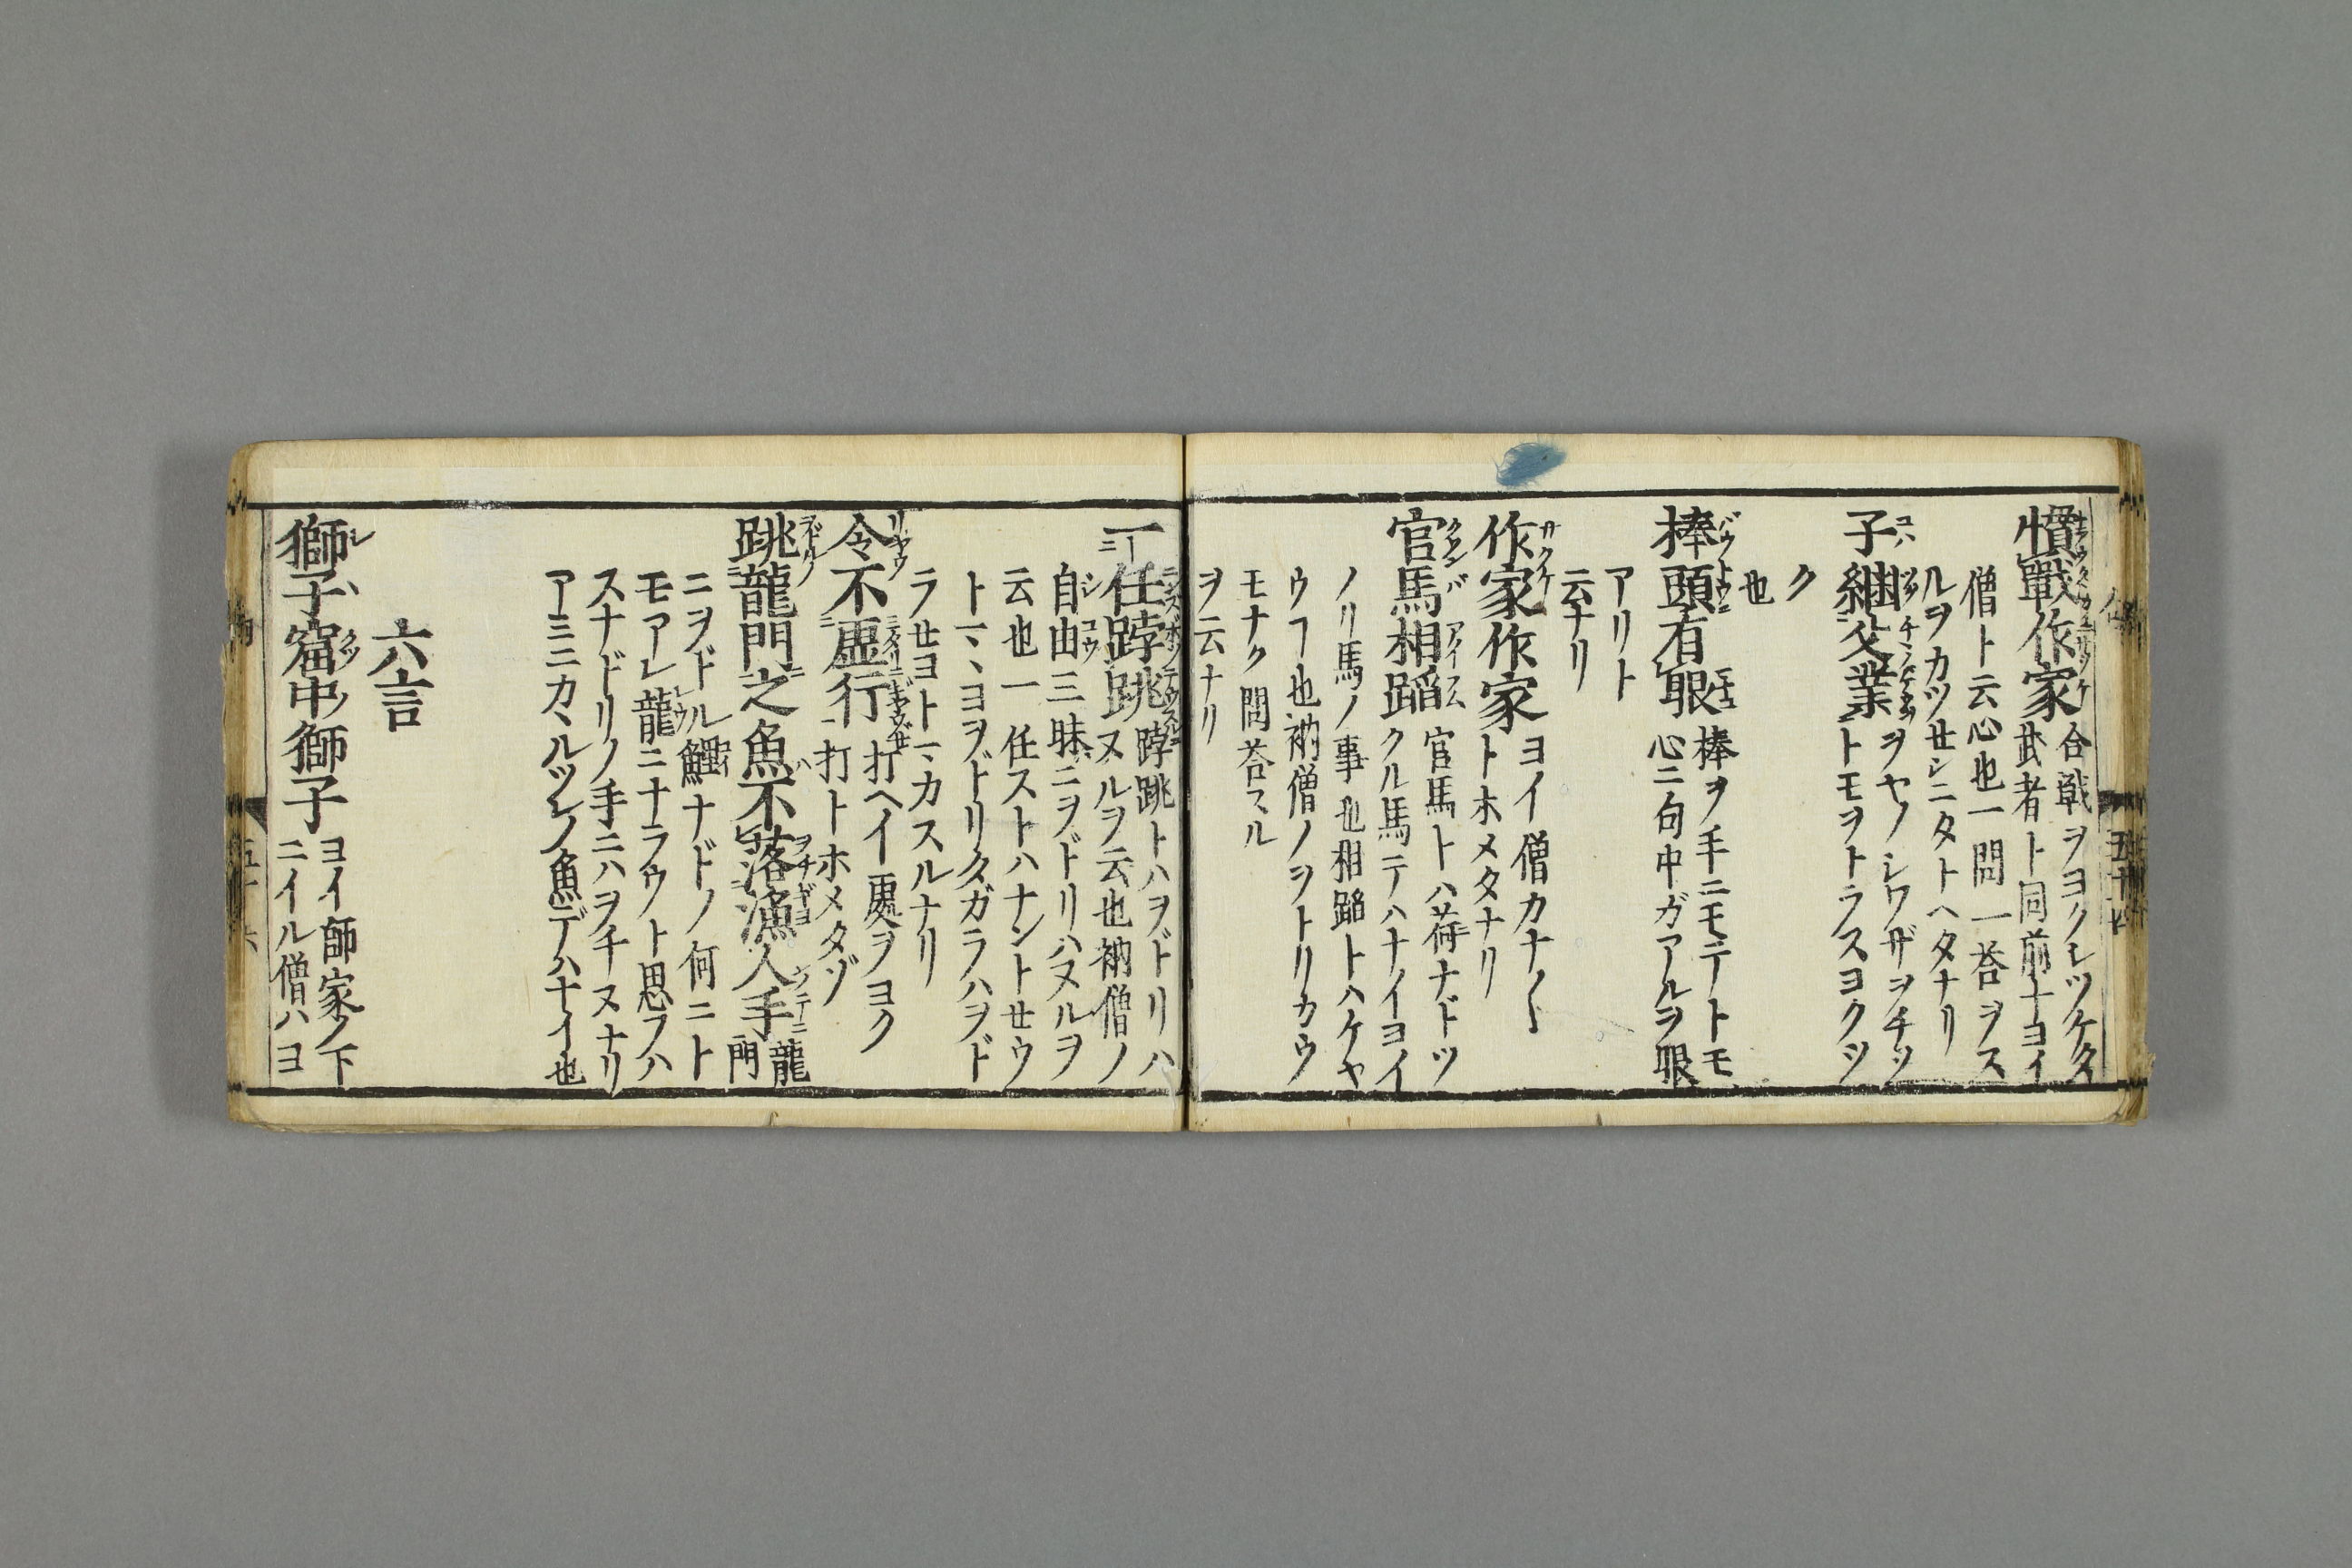 慣戰作家 合戰ヲヨクシツケタ
武者ト同前ナヨイ
僧ト云心也一問一荅ヲス
ルヲカツセンニタトヘタナリ
子継父業 ヲヤノシワザヲチツ
トモヲトラスヨクツ
ク
也
棒頭有眼 棒ヲ手ニモテトモ
心ニ句中ガアルヲ眼
アリト
云ナリ
作家作家 ヨイ僧カナ〱
トホメタナリ
官馬相踏 官馬トハ荷ナドツ
クル馬テハナイヨイ
ノリ馬ノ事也相踏トハケヤ
ウフ也衲僧ノヲトリカウ
モナク問荅スル
ヲ云ナリ
一任𨁝跳 𨁝跳トハヲドリハ
ヌルヲ云也衲僧ノ
自由三昧ニヲドリハヌルヲ
云也一任ストハナントセウ
トマヽヨヲドリタガラハヲド
ラセヨトマカスルナリ
令不虚行 打ヘイ處ヲヨク
打トホメタゾ
跳龍門之魚不落漁人手 龍
門
ニヲドル鯉ナドノ何ニト
モアレ龍ニナラウト思フハ
スナドリノ手ニハヲチヌナリ
アミニカヽルツレノ魚デハナイ也
六言
獅子窟中獅子 ヨイ師家ノ下
ニイル僧ハヨ